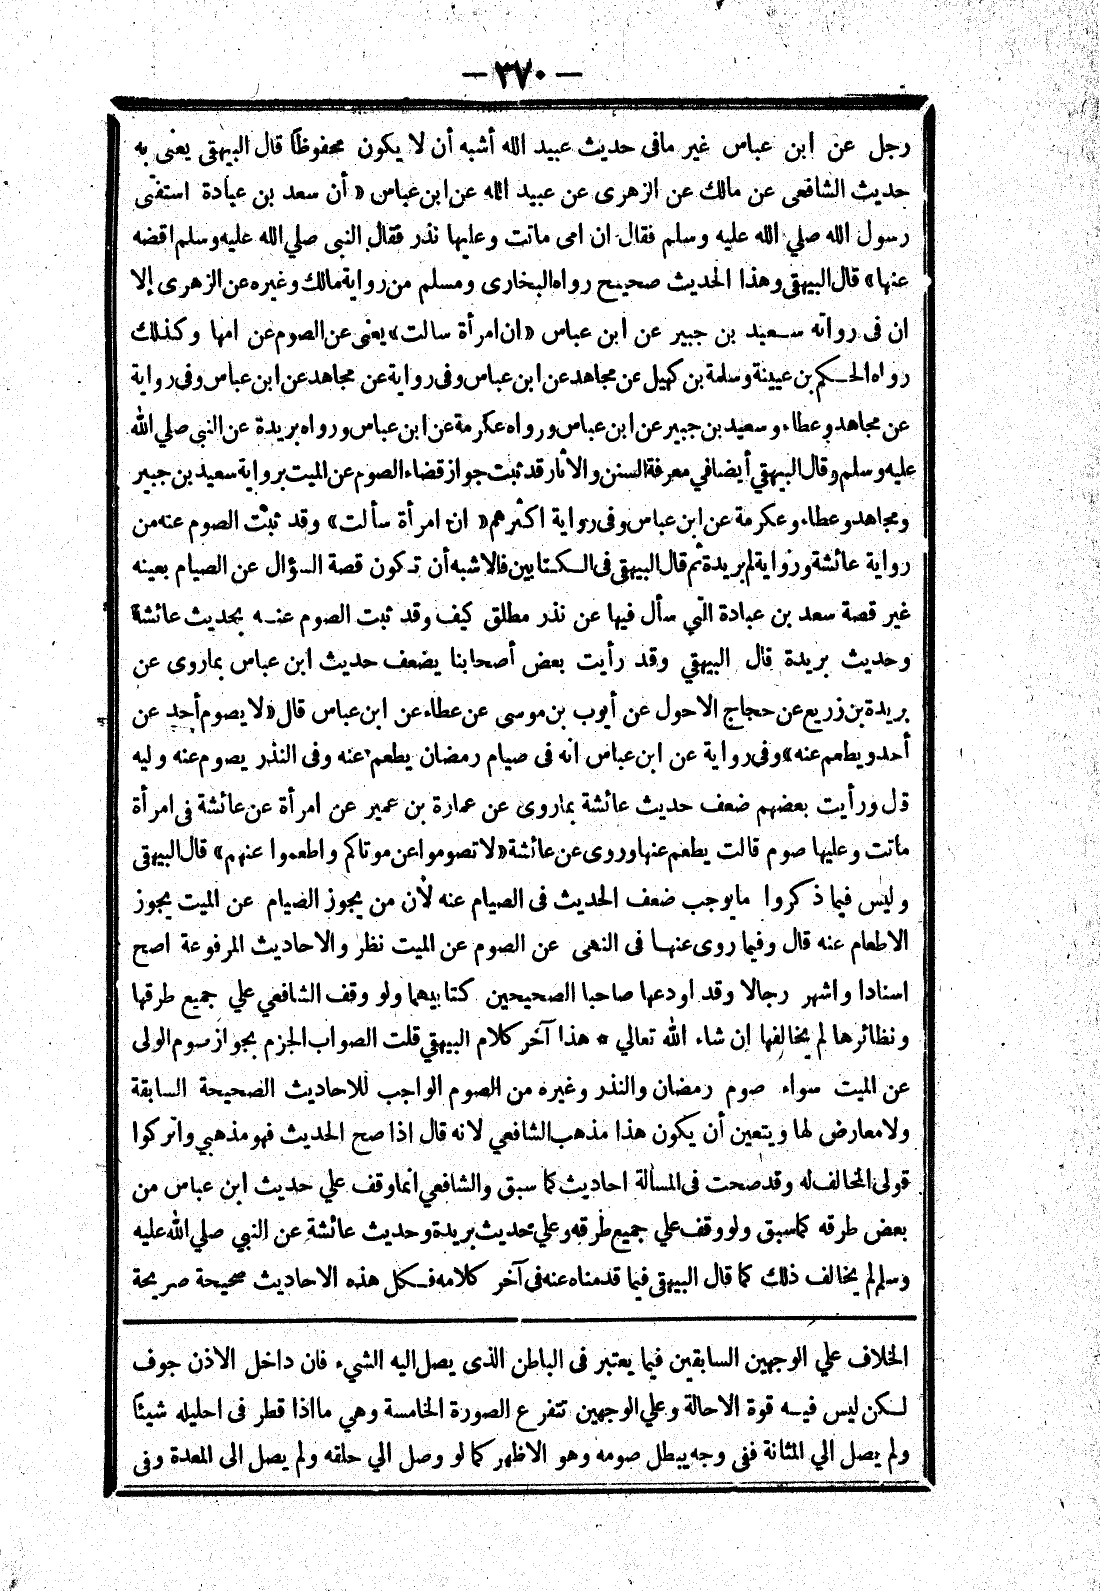 — ٣٧٠ —
رجل عن ابن عباس غير مافى حديث عبيد الله أشبه أن لا يكون محفوظا قال البيهقى يعنى به
حديث الشافعى عن مالك عن الزهرى عن عبيد الله عن ابن عباس « أن سعد بن عبادة استفتى
رسول الله صلي الله عليه وسلم فقال ان امى ماتت وعليها نذر فقال النبى صلي الله عليه وسلم اقضه
عنها » قال البيهقى وهذا الحديث صحيح رواه البخارى ومسلم من رواية مالك وغيره عن الزهرى إلا
ان فى رواته سعيد بن جبير عن ابن عباس « ان امرأة سالت » يعنى عن الصوم عن امها وكذلك
رواه الحكم بن عيينة وسلمة بن كهيل عن مجاهد عن ابن عباس وفى رواية عن مجاهد عن ابن عباس وفى رواية
عن مجاهد وعطاء وسعيد بن جبير عن ابن عباس ورواه عكرمة عن ابن عباس ورواه بريدة عن النبي صلي الله
عليه وسلم وقال البيهقي أيضا في معرفة السنن والآثار قد ثبت جواز قضاء الصوم عن الميت برواية سعيد بن جبير
ومجاهد وعطاء وعكرمة عن ابن عباس وفى رواية اكثرهم « ان امرأة سألت » وقد ثبتت الصوم عنه من
رواية عائشة ورواية لم بريدة ثم قال البيهقى فى الكتابين فالاشبه أن تكون قصة السؤال عن الصيام بعينه
غير قصة سعد بن عبادة التي سأل فيها عن نذر مطلق كيف وقد ثبت الصوم عنه بحديث عائشة
وحديث بريدة قال البيهقي وقد رأيت بعض أصحابنا يضعف حديث ابن عباس بماروى عن
بريدة بن زريع عن حجاج الاحول عن أيوب بن موسى عن عطاء عن ابن عباس قال « لا يصوم أحد عن
أحد ويطعم عنه » وفى رواية عن ابن عباس انه فى صيام رمضان يطعم عنه وفى النذر يصوم عنه وليه
قل ورأيت بعضهم ضعف حديث عائشة بماروى عن عمارة بن عمير عن امرأة عن عائشة فى امرأة
ماتت وعليها صوم قالت يطعم عنها وروى عن عائشة « لا تصوموا عن موتاكم واطعموا عنهم » قال البيهقى
وليس فيما ذكروا مايوجب ضعف الحديث فى الصيام عنه لأن من يجوز الصيام عن الميت يجوز
الاطعام عنه قال وفيما روى عنهـا فى النهى عن الصوم عن الميت نظر والاحاديث المرفوعة اصح
اسنادا واشهر رجالا وقد اودعها صاحبا الصحيحين كتابيهما ولو وقف الشافعي علي جميع طرقها
ونظائرها لم يخالفها ان شاء الله تعالي * هذا آخر كلام البيهقي قلت الصواب الجزم بجواز صوم الولى
عن الميت سواء صوم رمضان والنذر وغيره من الصوم الواجب للاحاديث الصحيحة السابقة
ولا معارض لها ويتعين أن يكون هذا مذهب الشافعي لانه قال اذا صح الحديث فهو مذهبي واتركوا
قولى المخالف له وقد صحت فى المسالة احاديث كما سبق والشافعي انما وقف علي حديث ابن عباس من
بعض طرقه كما سبق ولو وقف علي جميع طرقه وعلي حديث بريدة وحديث عائشة عن النبي صلي الله عليه
وسلم لم يخالف ذلك كما قال البيهقى فيما قدمناه عنه فى آخر كلامه فكل هذه الاحاديث صحيحة صريحة
الخلاف علي الوجهين السابقين فيما يعتبر فى الباطن الذى يصل اليه الشيء فان داخل الاذن جوف
لكن ليس فيه قوة الاحالة وعلي الوجهين تتفرع الصورة الخامسة وهي ما اذا قطر فى احليله شيئا
ولم يصل الي المثانة ففى وجه يبطل صومه وهو الاظهر كما لو وصل الي حلقه ولم يصل الى المعدة وفى